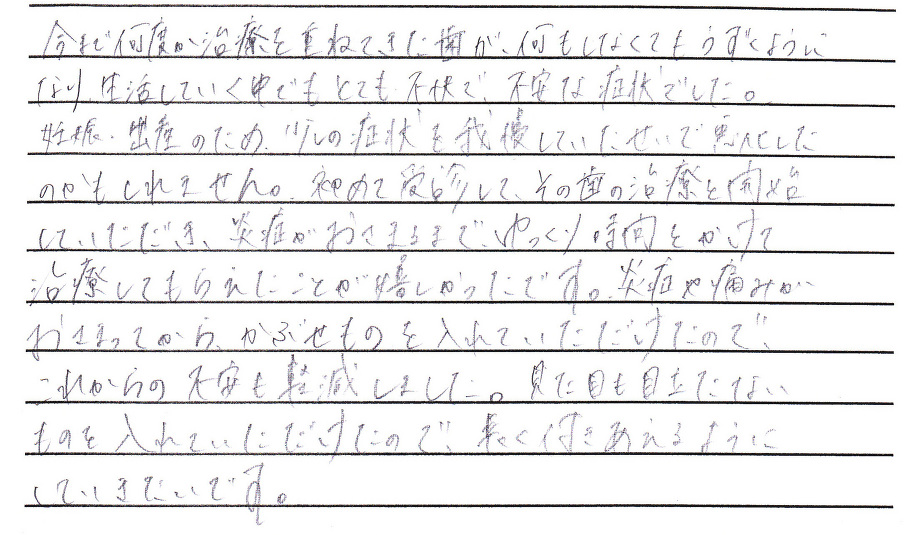 今まで何度か治療を重ねてきた歯が、何もしなくてもうずくように
なり、生活していく中でもとても不快で、不安な症状でした。
妊娠・出産のため、少しの症状を我慢していたせいで悪化した
のかもしれません。初めて受診して、その歯の治療を開始
していただき、炎症がおさまるまで、ゆっくり時間をかけて
治療してもらえたことが嬉しかったです。炎症や痛みが
おさまってから、かぶせものを入れていただけたので、
これからの不安も軽減しました。見た目も目立たない
ものを入れていただけたので、長く付きあえるように
していきたいです。